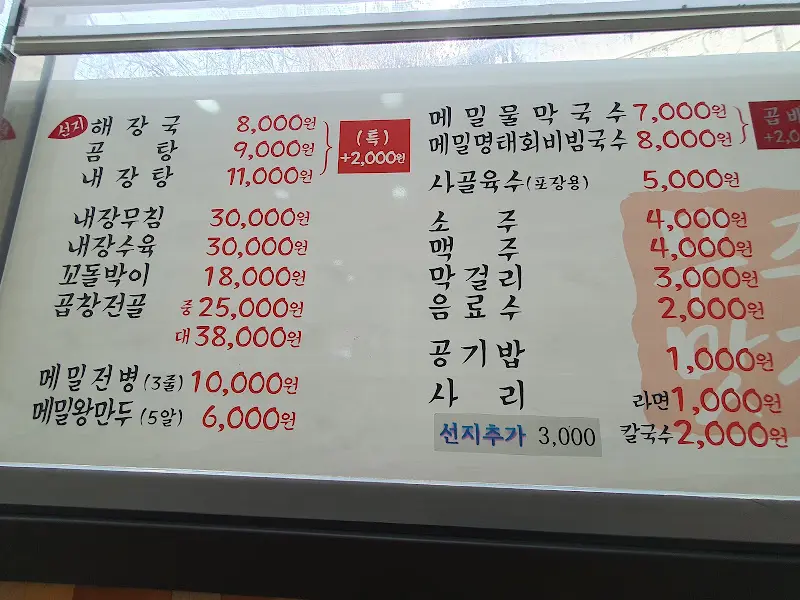 선지 해장국 8,000원
곰탕 9,000원
내장탕 11,000원
(특)
+2,000원
내장무침 30,000원
내장수육 30,000원
꼬돌박이 18,000원
곱창전골 중 25,000원
대 38,000원
메밀전병 (3줄) 10,000원
메밀왕만두 (5알) 6,000원
메밀물막국수 7,000원
메밀명태회비빔국수 8,000원
사골육수(포장용) 5,000원
소주 4,000원
맥주 4,000원
막걸리 3,000원
음료수 2,000원
공기밥 1,000원
사리 라면 1,000원
칼국수 2,000원
선지추가 3,000